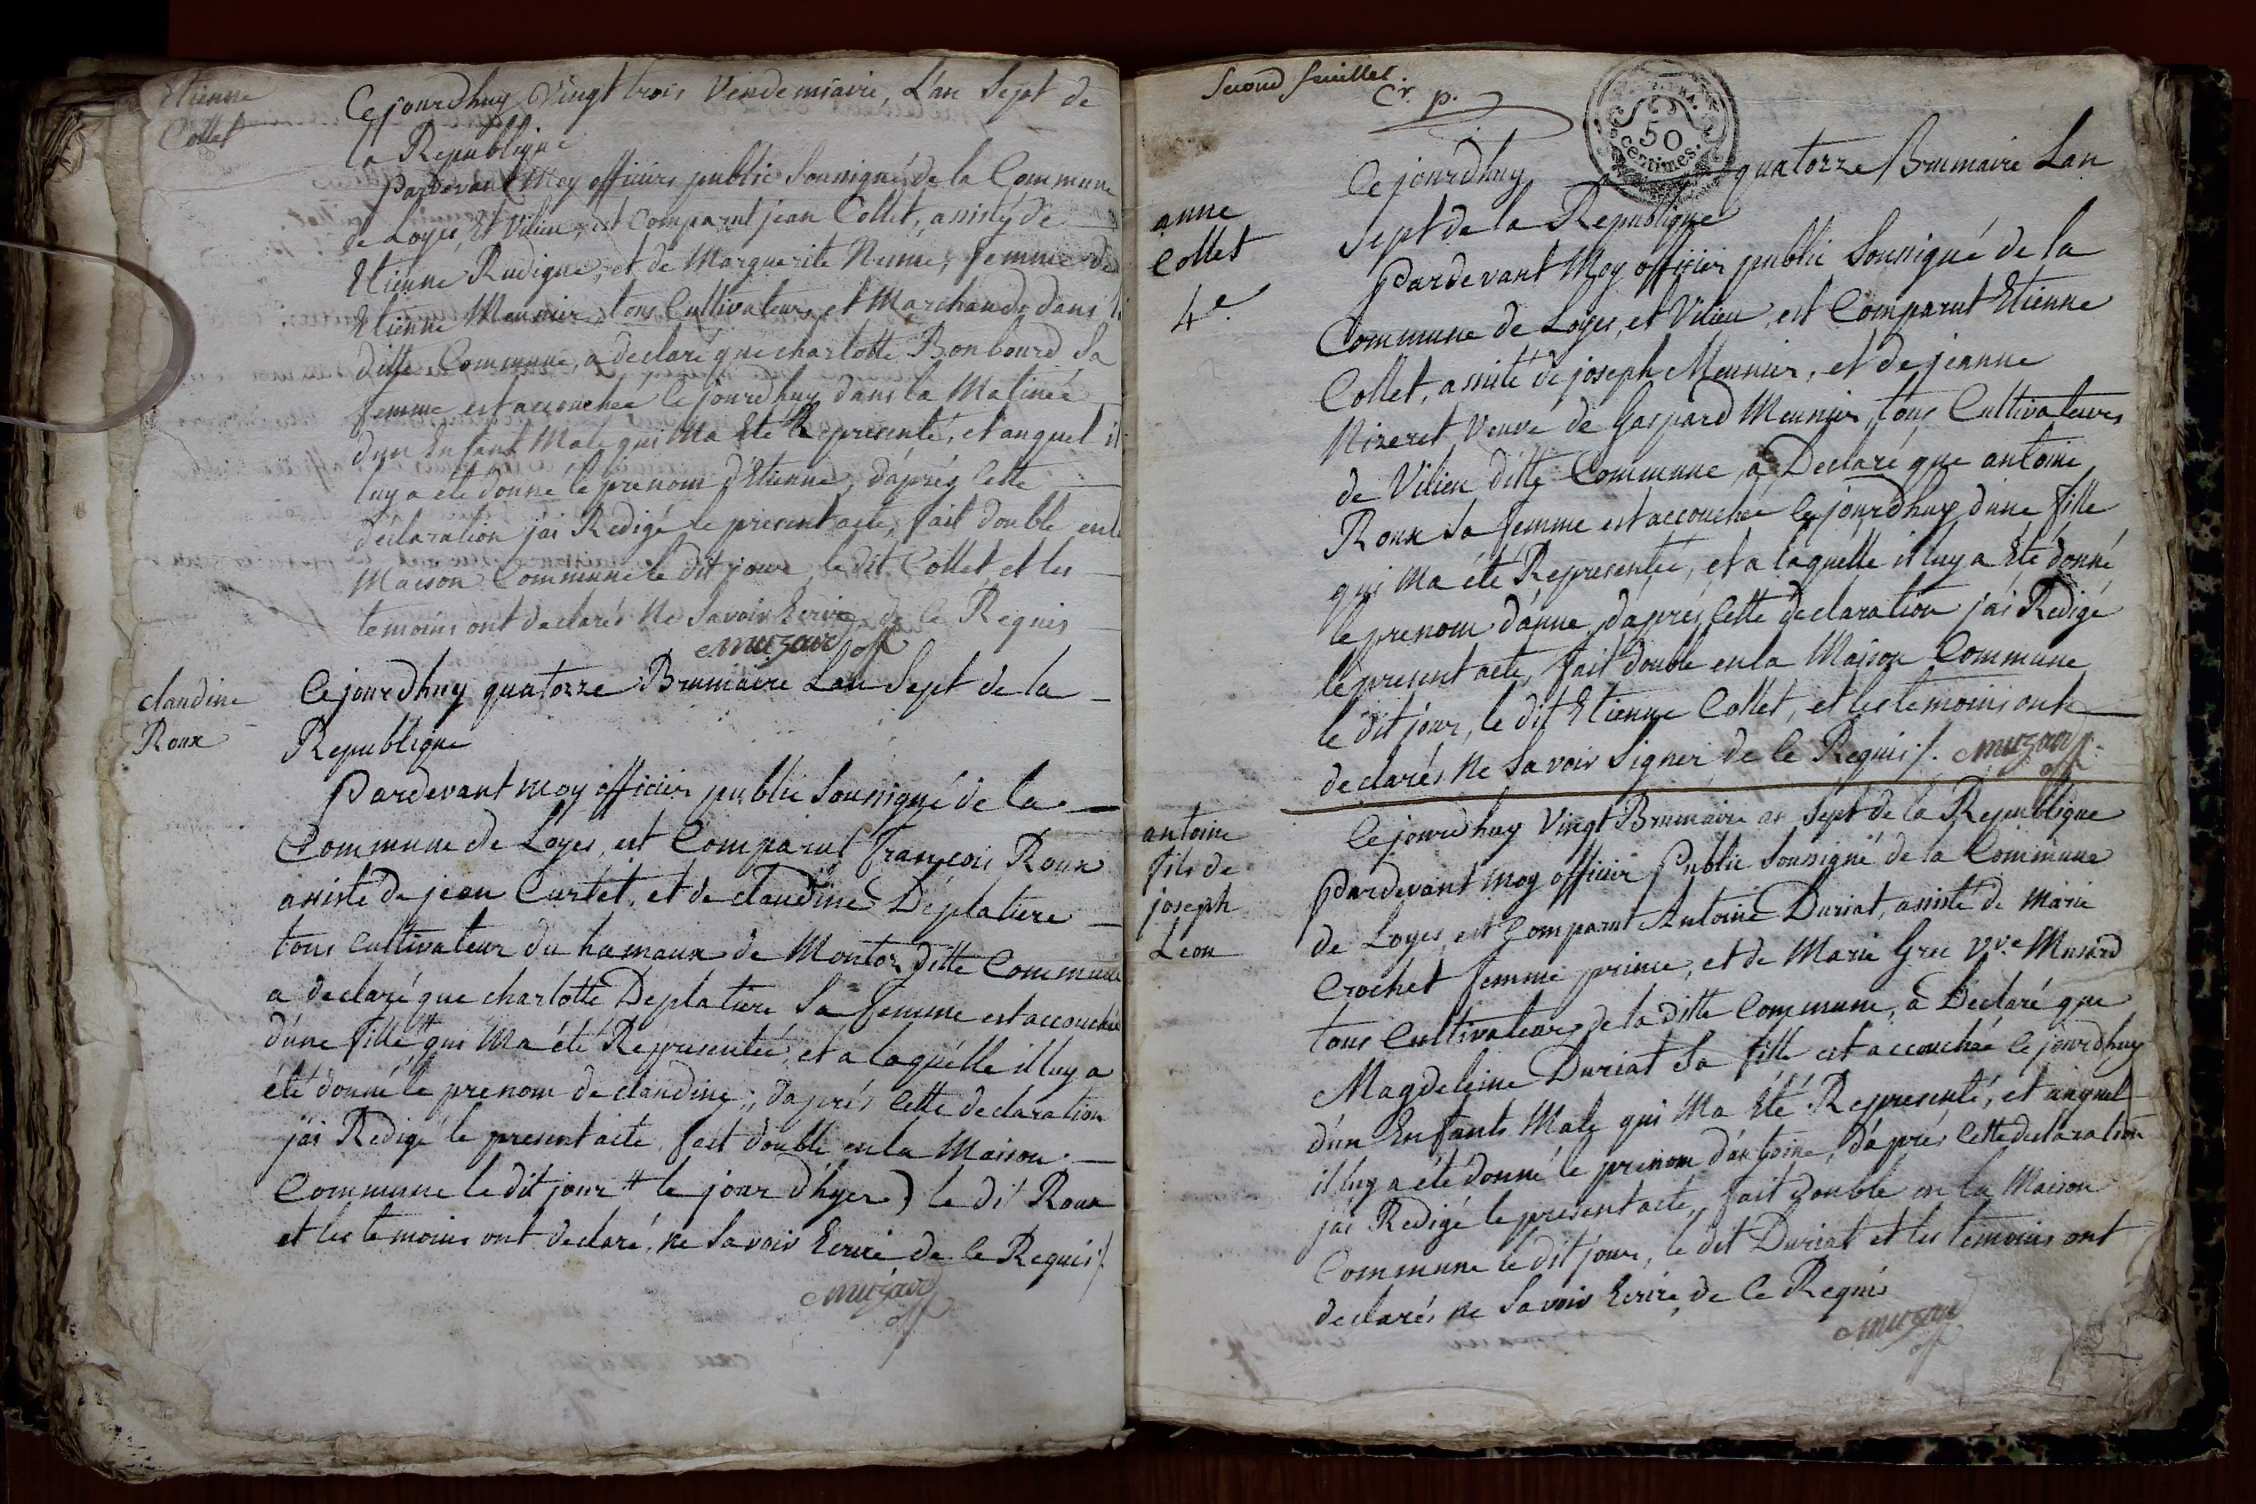 Etienne
Collet
Cejourdhuy Vingt trois Vendemiaire, L'an Sept de
la Republique
pardevant Moy officier public Soussigné de la Commune
de Loyes, Et Vilieu, est Comparut jean Collet, assisté de
Etienne Rudigue, et de Marguerite Neume, femme de
Etienne Meunier, tous Cultivateurs, et Marchands dans la
ditte Commune, a declaré que charlotte Bonbourd Sa
femme est accouchée Cejourdhuy dans la Matinée
d'un Enfant Male qui Ma Eté Representé, et auquel il
luy a été donné le prenom d'Etienne, d'aprés Cette
declaration jai Redigé le present acte, fait double en la
Maison Commune le dit jour, le dit Collet et les
temoins ont declarés Ne Savoir Ecrire, de Ce Requis
Muzard off
claudine
Roux
Cejourdhuy quatorze Brumaire Lan Sept de la
Republique
Pardevant moy officier public Soussigné de la
Commune de Loyes, est Comparut françois Roux
assisté de jean Curtet, et de claudine Déplatiere
tous Cultivateur du hamaux de Montoz ditte Commune
a declaré que charlotte Deplatiere Sa femme est accouchée
d'une fille # qui Ma été Representée, et a laquelle il luy a
été donné le prenom de claudine, d'aprés Cette declaration
j'ai Redigé le present acte, fait double en la Maison
Commune le dit jour # le jour d'hyer) le dit Roux
et les temoins ont declaré, ne Savoir Ecrire de Ce Requis /.
Muzard
off
Second feuillet.
Cr. p.
50
centimes.
anne
Collet
4e.
Cejourdhuy quatorze Brumaire Lan
Sept de la Republique
Pardevant Moy officier public Soussigné de la
Commune de Loyes, et Vilieu, est Comparut Etienne
Collet, assisté de joseph Meunier, et de jeanne
Nizeret, Veuve de Gaspard Meunier, tous Cultivateurs
de Vilieu ditte Commune, a Declaré que antoine
Roux Sa femme est accouchée Cejourdhuy d'une fille
qui Ma été Representée, et a laquelle il luy a Eté donné
le prenom d'anne, d'aprés Cette declaration j'ai Redigé
le present acte, fait double en la Maison Commune
le dit jour, le dit Etienne Collet, et les temoins ont
declarés Ne Savoir Signer, de Ce Requis /. Muzard
off
antoine
fils de
joseph
Leon
Cejourdhuy Vingt Brumaire an Sept de la Republique
Pardevant moy officier Public Soussigné de la Commune
de Loyes, est Comparut Antoine Duriat, assisté de Marie
Crochet femme prince, et de Marie Grec Vve. Musard
tous Cultivateurs de la ditte Commune, a Declaré que
Magdeleine Duriat Sa fille est accouchée Cejourdhuy
d'un Enfants Male qui Ma Eté Representé, et auquel
il luy a été donné le prenom d'antoine, d'aprés Cette declaration
j'ai Redigé le present acte, fait double en la Maison
Commune le dit jour, le dit Duriat et les temoins ont
declarés ne Savoir Ecrire, de Ce Requis
Muzard
off